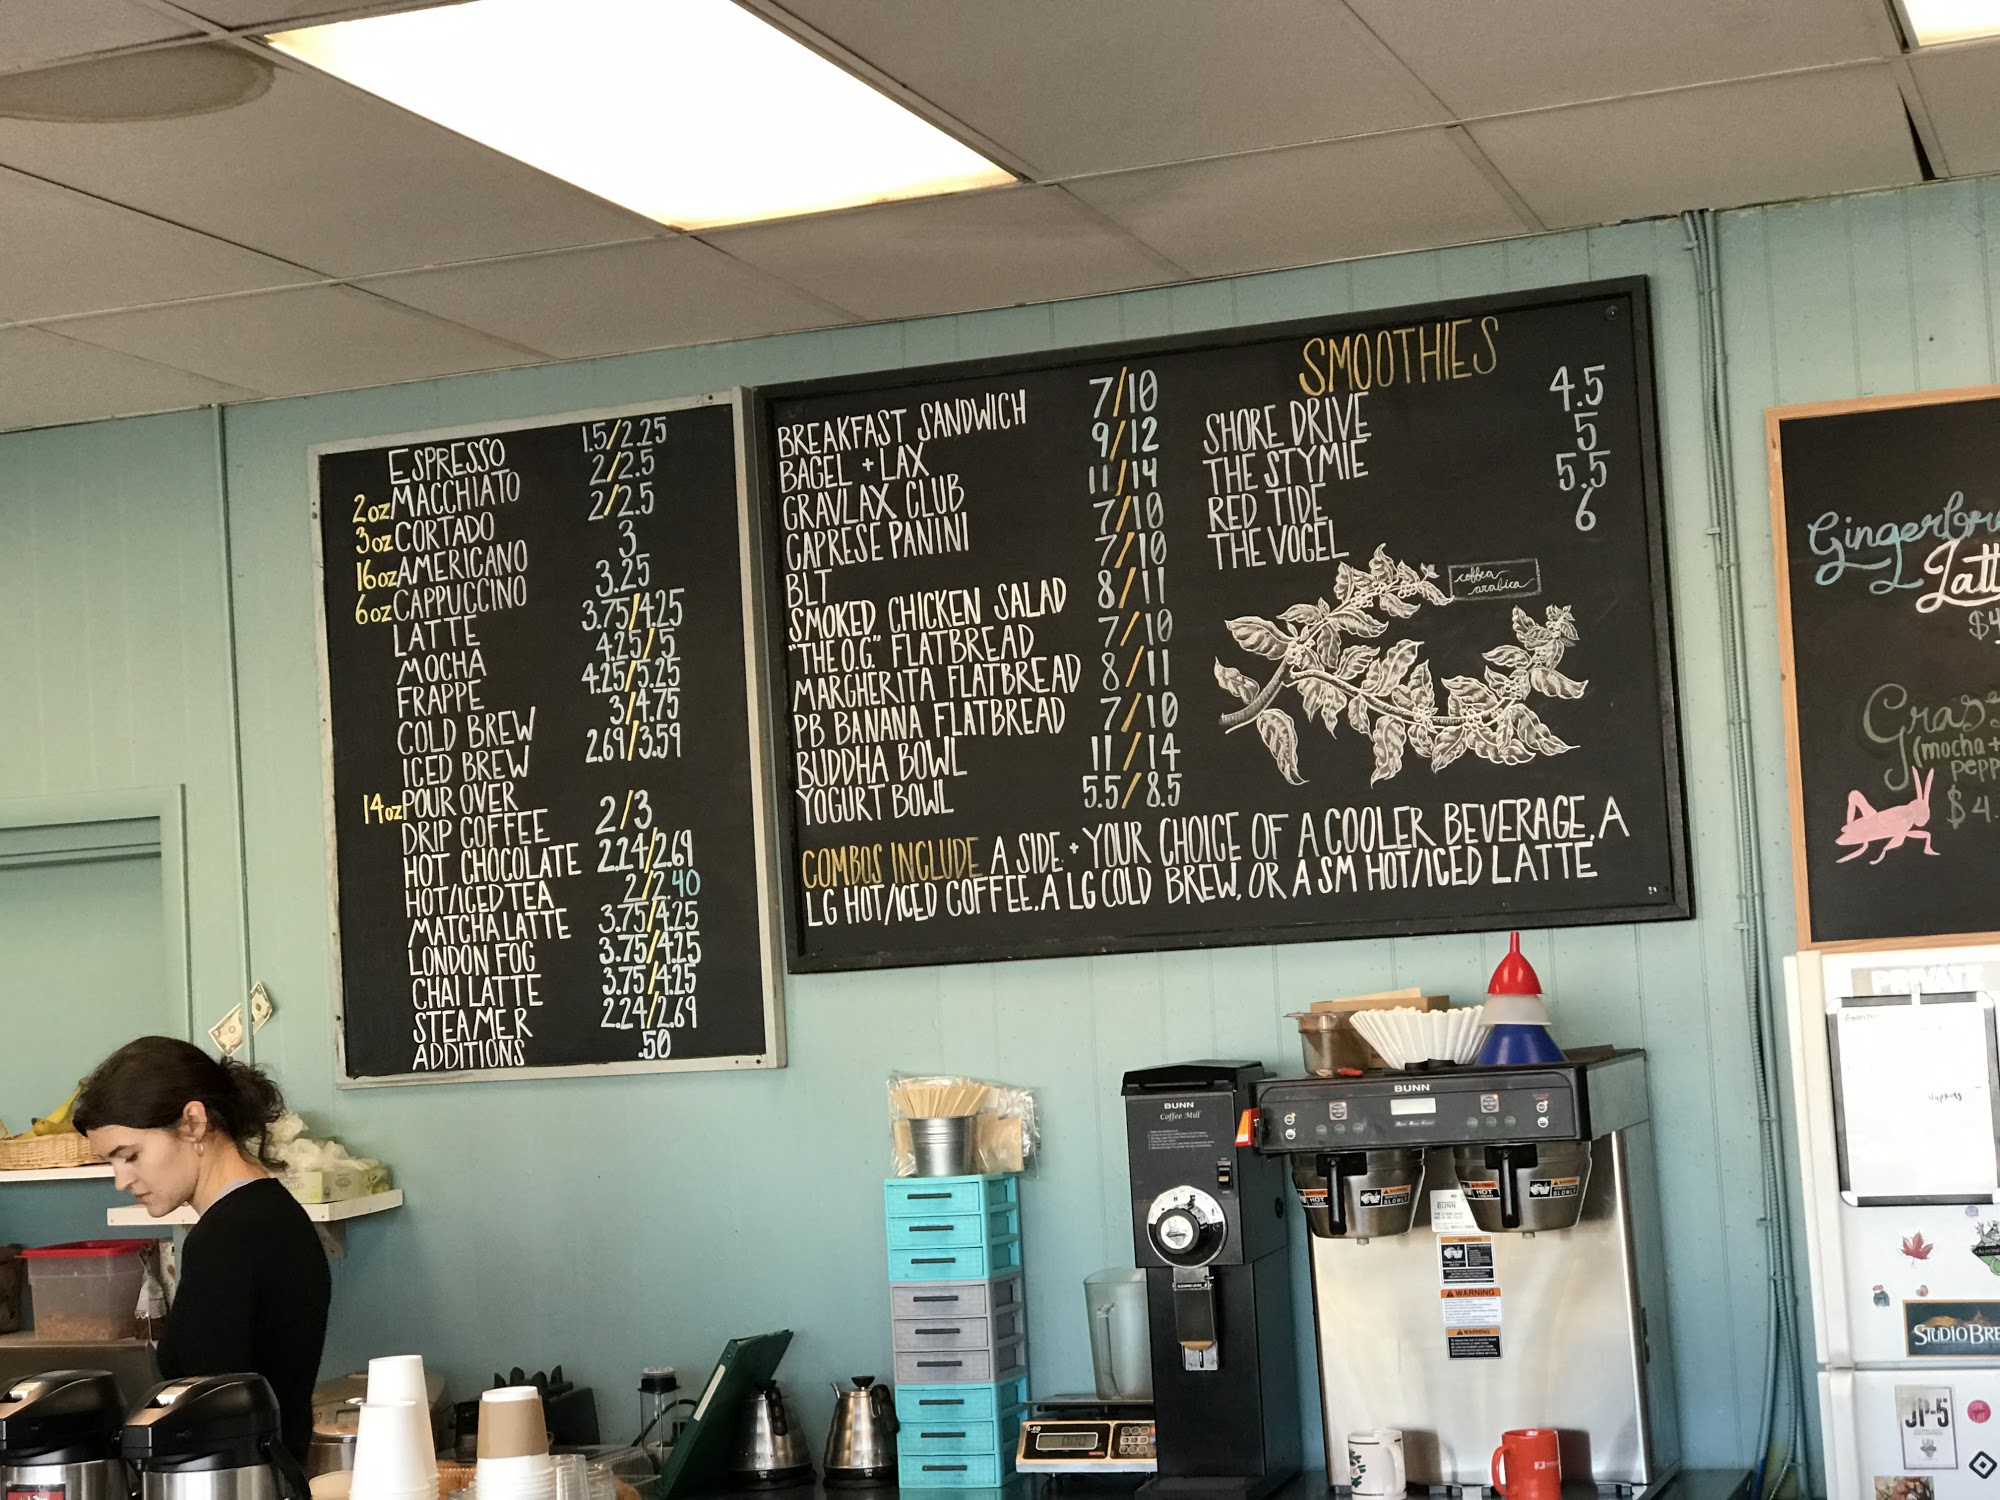 ESPRESSO 1.5/2.25
2oz MACCHIATO 2/2.5
3oz CORTADO 2/2.5
16oz AMERICANO 3
6oz CAPPUCCINO 3.25
LATTE 3.75/4.25
MOCHA 4.25/5
FRAPPE 4.25/5.25
COLD BREW 3/4.75
ICED BREW 2.69/3.59
14oz POUR OVER
DRIP COFFEE 2/3
HOT CHOCOLATE 2.24/2.69
HOT/ICED TEA 2/2.40
MATCHA LATTE 3.75/4.25
LONDON FOG 3.75/4.25
CHAI LATTE 3.75/4.25
STEAMER 2.24/2.69
ADDITIONS .50
BREAKFAST SANDWICH 7/10
BAGEL + LAX 9/12
GRAVLAX CLUB 11/14
CAPRESE PANINI 7/10
BLT 7/10
SMOKED CHICKEN SALAD 8/11
"THE O.G." FLATBREAD 7/10
MARGHERITA FLATBREAD 8/11
PB BANANA FLATBREAD 7/10
BUDDHA BOWL 11/14
YOGURT BOWL 5.5/8.5
SMOOTHIES
SHORE DRIVE 4.5
THE STYMIE 5
RED TIDE 5.5
THE VOGEL 6
coffea
arabica
COMBOS INCLUDE A SIDE + YOUR CHOICE OF A COOLER BEVERAGE, A
LG HOT/ICED COFFEE, A LG COLD BREW, OR A SM HOT/ICED LATTE
$4
(mocha +
$4.
PRIVATE
BUNN
Coffee Mill
BUNN
HOT
SLOWLY
HOT
SLOWLY
BUNN
WARNING
WARNING
WARNING
STUDIO BRE
JP-5